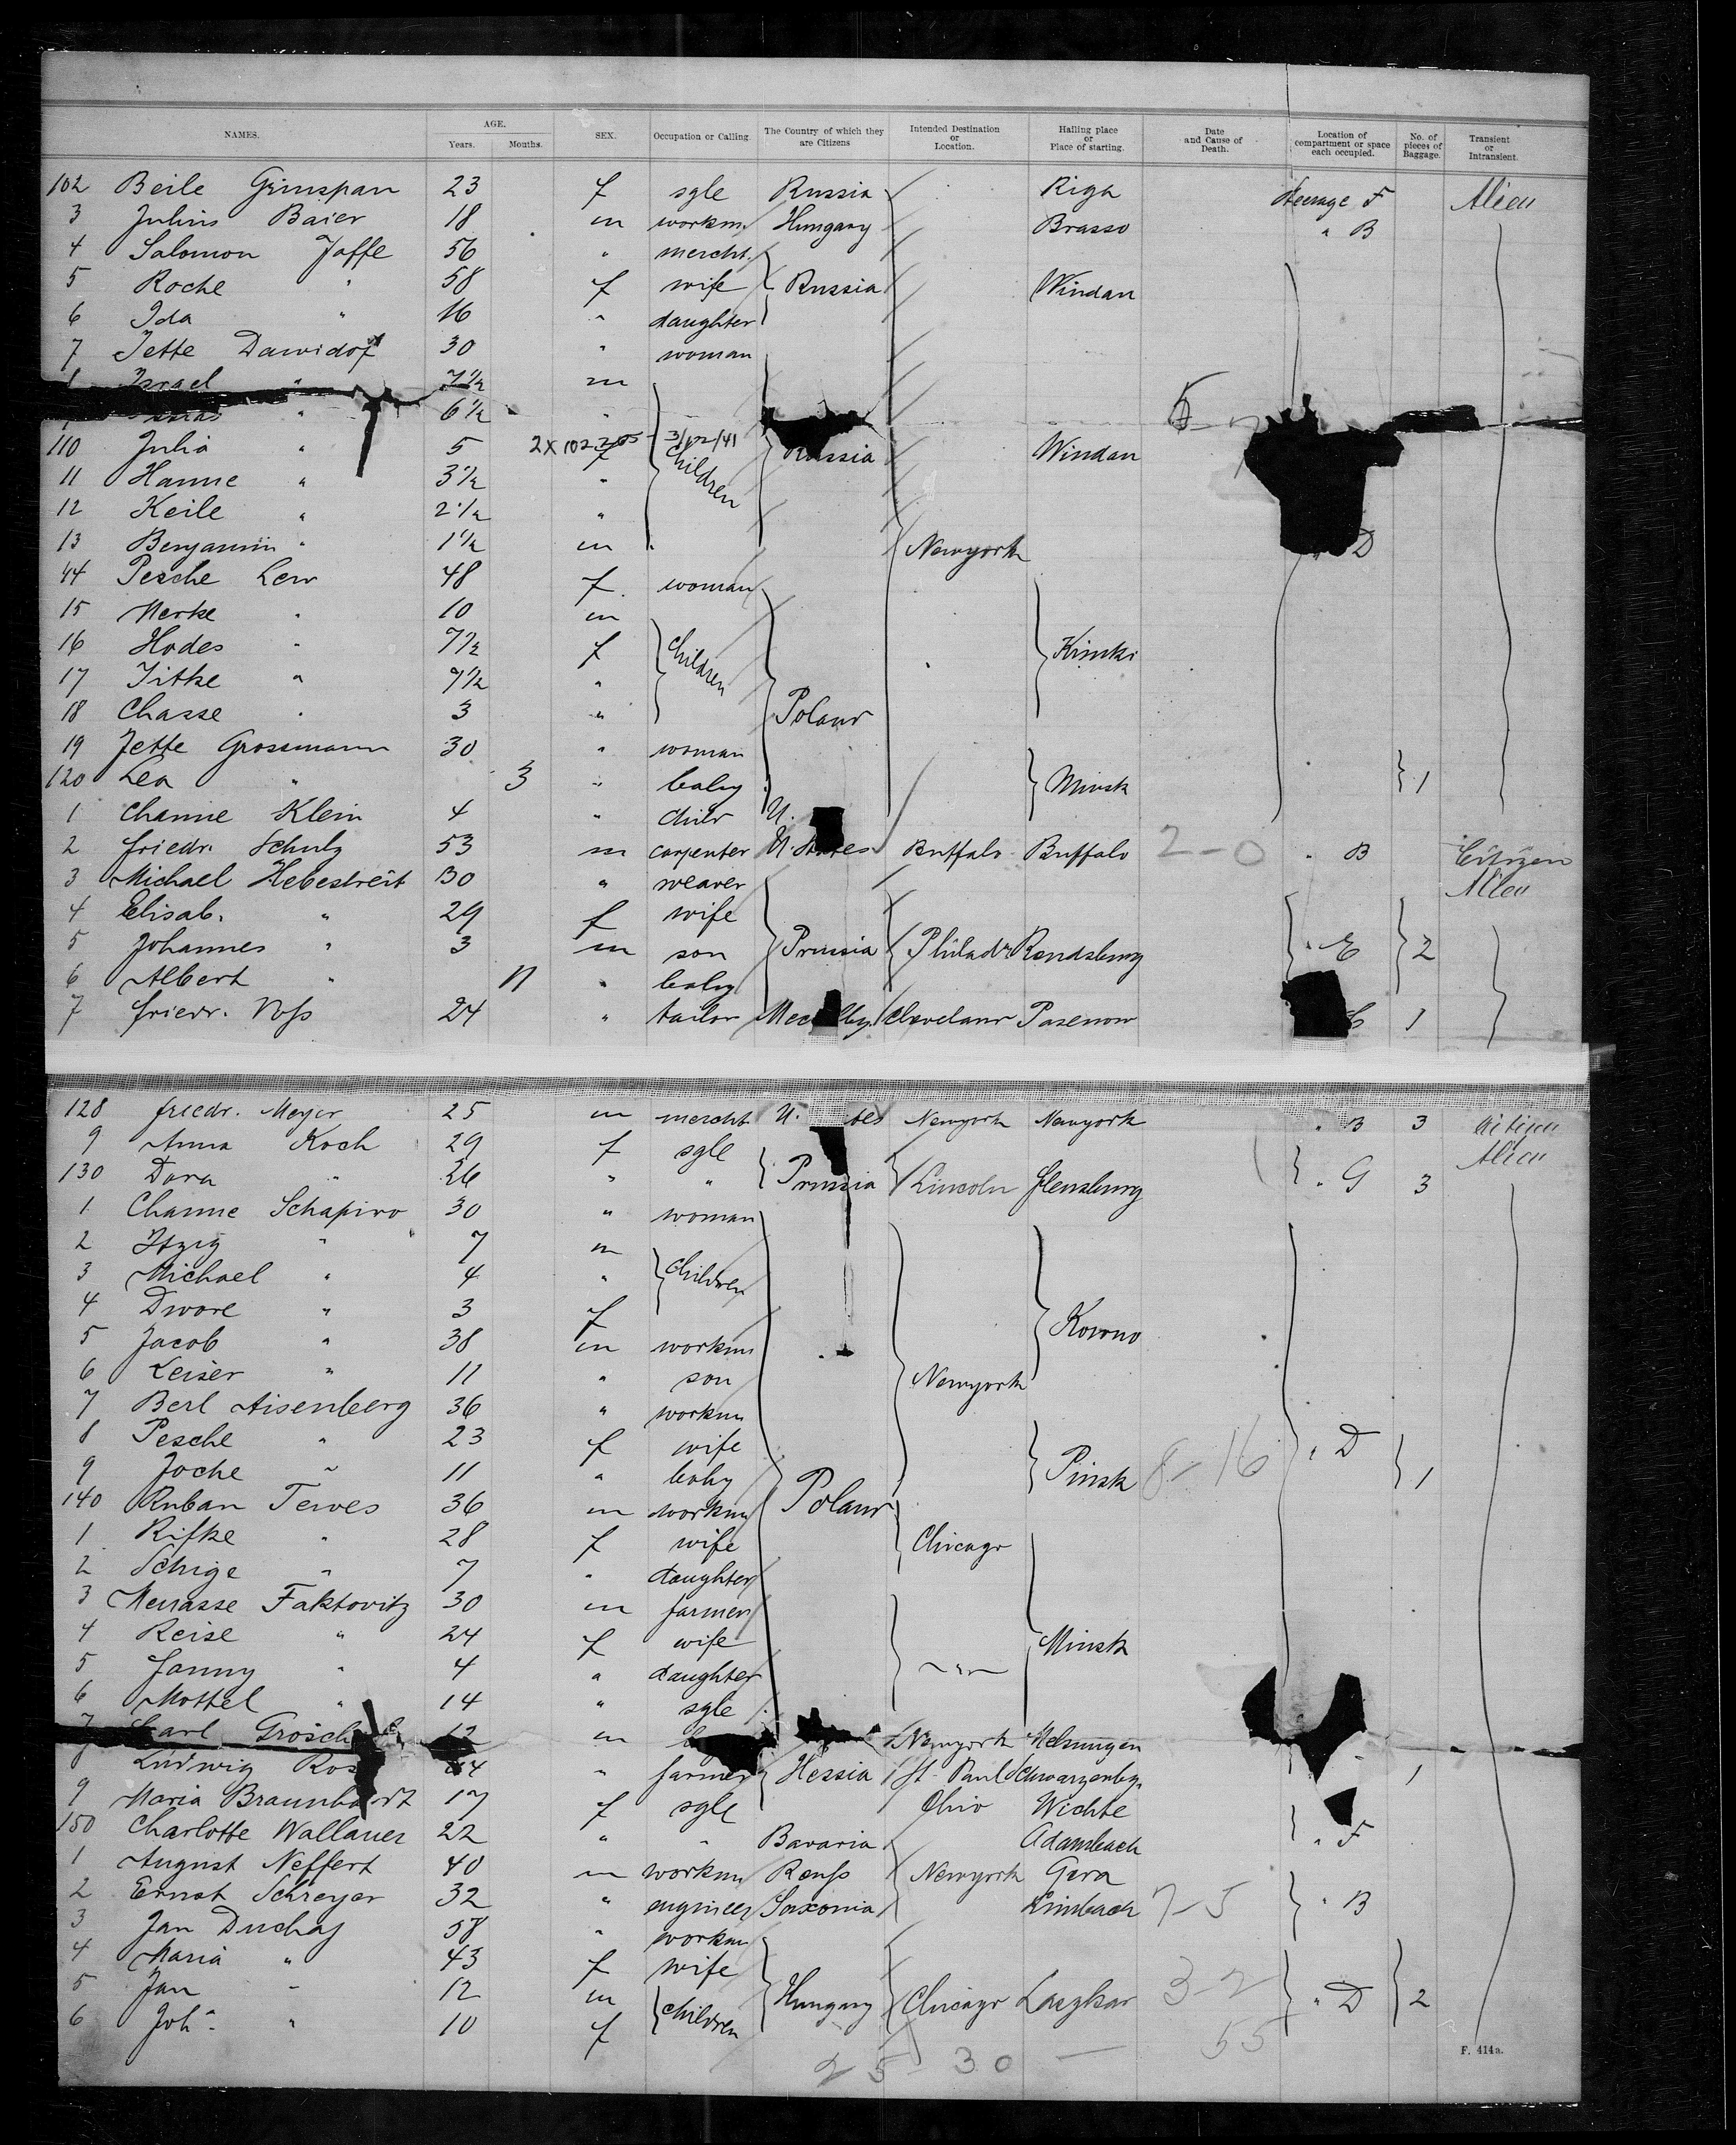 NAMES. AGE. Years. Months. SEX. Occupation or Calling. The Country of which they are Citizens Intended Destination or Location. Hailing place or Place of starting. Date and Cause of Death. Location of compartment or space each occupied. No. of pieces of Baggage. Transient or Intransient.
102 Beile Grinspan 23 f sgle Russia Riga Steerage F Alien
3 Julius Baier 18 m workm. Hungary Brasso " B
4 Salomon Jaffe 56 " mercht.
5 Roche " 58 f wife Russia Windau
6 Ida " 16 " daughter
7 Jette Dawidof 30 " woman
8 Israel " 7½ m
6½ "
110 Julia " 5 2X102705 f 3/12/41 children Russia Windau
11 Hanne " 3½ "
12 Keile " 2½ "
13 Benjamin " 1½ m Newyork D
14 Pesche Lew 48 f woman
15 Merke " 10 m
16 Hodes " 7½ f children Kinski
17 Titke " 7½ "
18 Chasse " 3 " Poland
19 Jette Grossmann 30 " woman
120 Lea " 3 " baby Minsk 1
1 Channe Klein 4 " child U.
2 Friedr. Schulz 53 m carpenter U. States Buffalo Buffalo 2-0 " B Citizen
3 Michael Hebestreit 30 " weaver Alien
4 Elisab. " 29 f wife
5 Johannes " 3 m son Prussia Philad. Rendsburg " E 2
6 Albert " 11 " baby
7 Friedr. Voss 24 " tailor Cleveland Pasenow 1
128 Friedr. Meyer 25 m mercht U. Newyork Newyork " B 3 Citizen
9 Anna Koch 29 f sgle Alien
130 Dora " 26 " " Prussia Lincoln Flensburg " G 3
1 Channe Schapiro 30 " woman
2 Itzig " 7 m
3 Michael " 4 " children
4 Dwore " 3 f
5 Jacob " 38 m workm Kowno
6 Leiser " 11 " son Newyork
7 Berl Aisenberg 36 " workm
8 Pesche " 23 f wife " D
9 Joche " 11 " baby Pinsk 8-16 1
140 Ruban Tewes 36 m workm Poland
1 Rifke " 28 f wife Chicago
2 Schige " 7 " daughter
3 Menasse Faktovitz 30 m farmer
4 Reise " 24 f wife Minsk
5 Fanny " 4 " daughter "
6 Mottel " 14 " sgle
7 Carl 12 m Newyork Melsungen
8 Ludwig " farmer Hessia St. Paul Schwarzenbg. 1
9 Maria Braunhardt 17 f sgle Ohio Wichte
150 Charlotte Wallauer 22 " " Bavaria Adambach " F
1 August Neffert 40 m workm Reuss Newyork Gera
2 Ernst Schreyer 32 " engineer Saxonia Limbach 7-5 " B
3 Jan Duchaj 58 " workm
4 Maria " 43 f wife
5 Jan " 12 m children Hungary Chicago 3-2 " D 2
6 Joh. " 10 f
25 30 55
F. 414a.